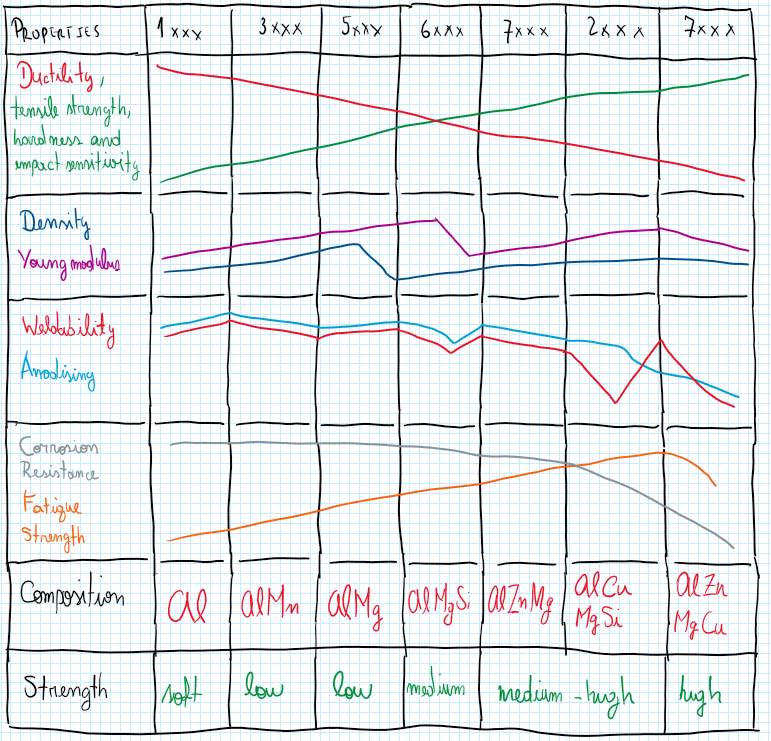 PROPERTIES 1xxx 3xxx 5xxx 6xxx 7xxx 2xxx 7xxx
Ductility,
tensile strength,
hardness and
impact sensitivity
Density
Young modulus
Weldability
Anodising
Corrosion
Resistance
Fatigue
Strength
Composition Al AlMn AlMg AlMgSi AlZnMg AlCu AlZn
MgSi MgCu
Strength soft low low medium medium - high high